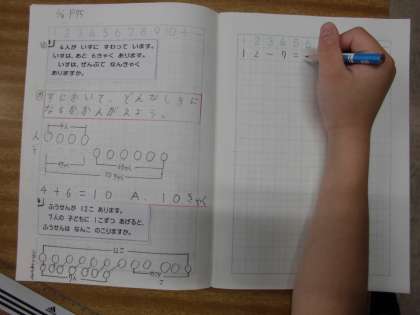 5/16 P.75
1 2 3 4 5 6 7 8 9 10 + -
4人が いすに すわって います。
いすは、あと 6きゃく あります。
いすは、ぜんぶで なんきゃく
ありますか。
ずにかいて、どんなしきに
なるかかんがえよう。
4人
人
4 + 6 = 10 A. 10きゃく
ふうせんが 12こ あります。
7人の 子どもに 1こずつ あげると、
ふうせんは なんこ のこりますか。
12こ
7人
1 2 3 4 5 6
12 - 7 =